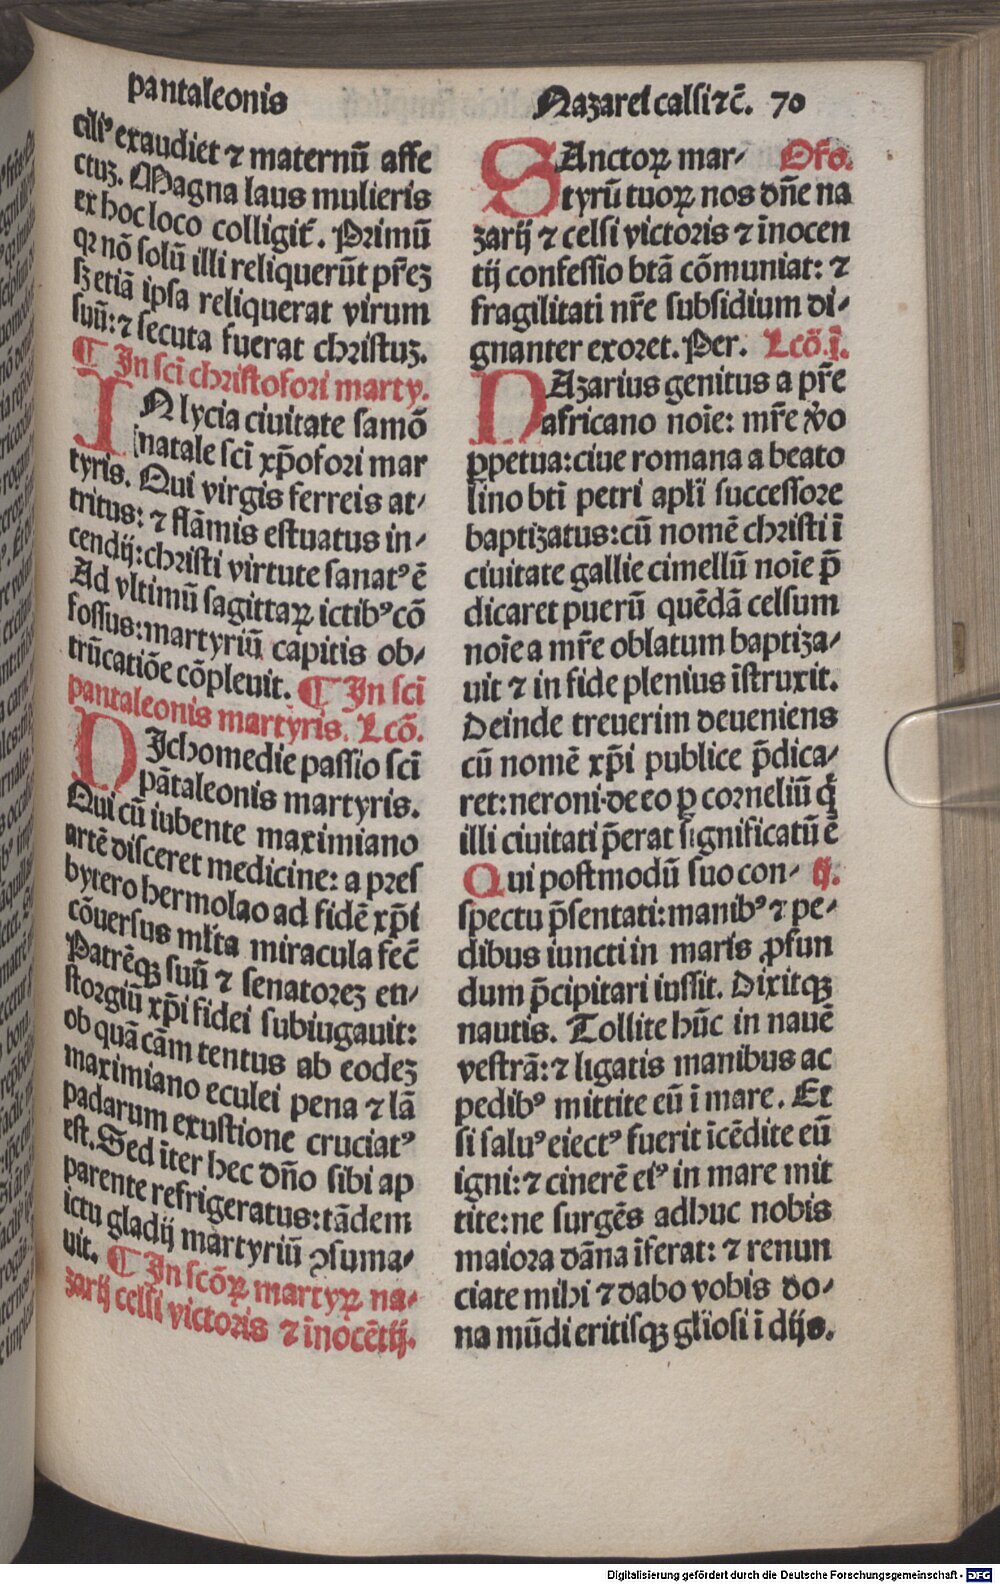 pantaleonis
Nazarei calsi ⁊c̄. 70
cili⁹ exaudiet ⁊ maternū affe
ctuꝫ. Magna laus mulieris
ex hoc loco colligit᷑. Primū
qꝛ nō solū illi reliquerūt pr̄eꝫ
sꝫ etiā ipsa reliquerat virum
suū: ⁊ secuta fuerat christuꝫ.
¶ In sci̅ christofori marty.
IN lycia ciuitate samō
natale sci̅ xp̄ofori mar
tyris. Qui virgis ferreis at-
tritus: ⁊ flāmis estuatus in-
cendij: christi virtute sanat⁹ ē
Ad vltimū sagittaꝝ ictib⁹ cō
fossus: martyriū capitis ob-
trūcatiōe cōpleuit. ¶ In sci̅
pantaleonis martyris. Lcō.
NIchomedie passio sci̅
pātaleonis martyris.
Qui cū iubente maximiano
artē disceret medicine: a pres
bytero hermolao ad fidē xp̄i
cōuersus ml̄ta miracula fec̄
Patrēqꝫ suū ⁊ senatoreꝫ en-
storgiū xp̄i fidei subiugauit:
ob quā cām tentus ab eodeꝫ
maximiano eculei pena ⁊ lā
padarum exustione cruciat⁹
est. Sed īter hec dn̄o sibi ap
parente refrigeratus: tādem
ictu gladij martyriū ꝯsuma-
uit. ¶ In scōꝝ martyꝝ na-
zarij celsi victoris ⁊ īnocētij.
SAnctoꝝ mar- Oro.
tyrū tuoꝝ nos dn̄e na
zarij ⁊ celsi victoris ⁊ īnocen
tij confessio btā cōmuniat: ⁊
fragilitati nr̄e subsidium di-
gnanter exoret. Per. Lcō. i̅.
NAzarius genitus a pr̄e
africano noīe: mr̄e v̊o
ꝑpetua: ciue romana a beato
lino bti̅ petri apl̄i successore
baptizatus: cū nomē christi ī
ciuitate gallie cimellū noīe p̄
dicaret puerū quēdā celsum
noīe a mr̄e oblatum baptiza-
uit ⁊ in fide plenius īstruxit.
Deinde treuerim deueniens
cū nomē xp̄i publice p̄dica-
ret: neroni de eo ꝑ corneliū q̄
illi ciuitati p̄erat significatū ē
Qui postmodū suo con- ij.
spectu p̄sentati: manib⁹ ⁊ pe-
dibus iuncti in maris ꝓfun
dum p̄cipitari iussit. Dixitqꝫ
nautis. Tollite hūc in nauē
vestrā: ⁊ ligatis manibus ac
pedib⁹ mittite eū ī mare. Et
si salu⁹ eiect⁹ fuerit īcēdite eū
igni: ⁊ cinerē ei⁹ in mare mit
tite: ne surgēs adhuc nobis
maiora dāna īferat: ⁊ renun
ciate mihi ⁊ dabo vobis do-
na mūdi eritisqꝫ gl̄iosi ī dijs.
Digitalisierung gefördert durch die Deutsche Forschungsgemeinschaft - DFG